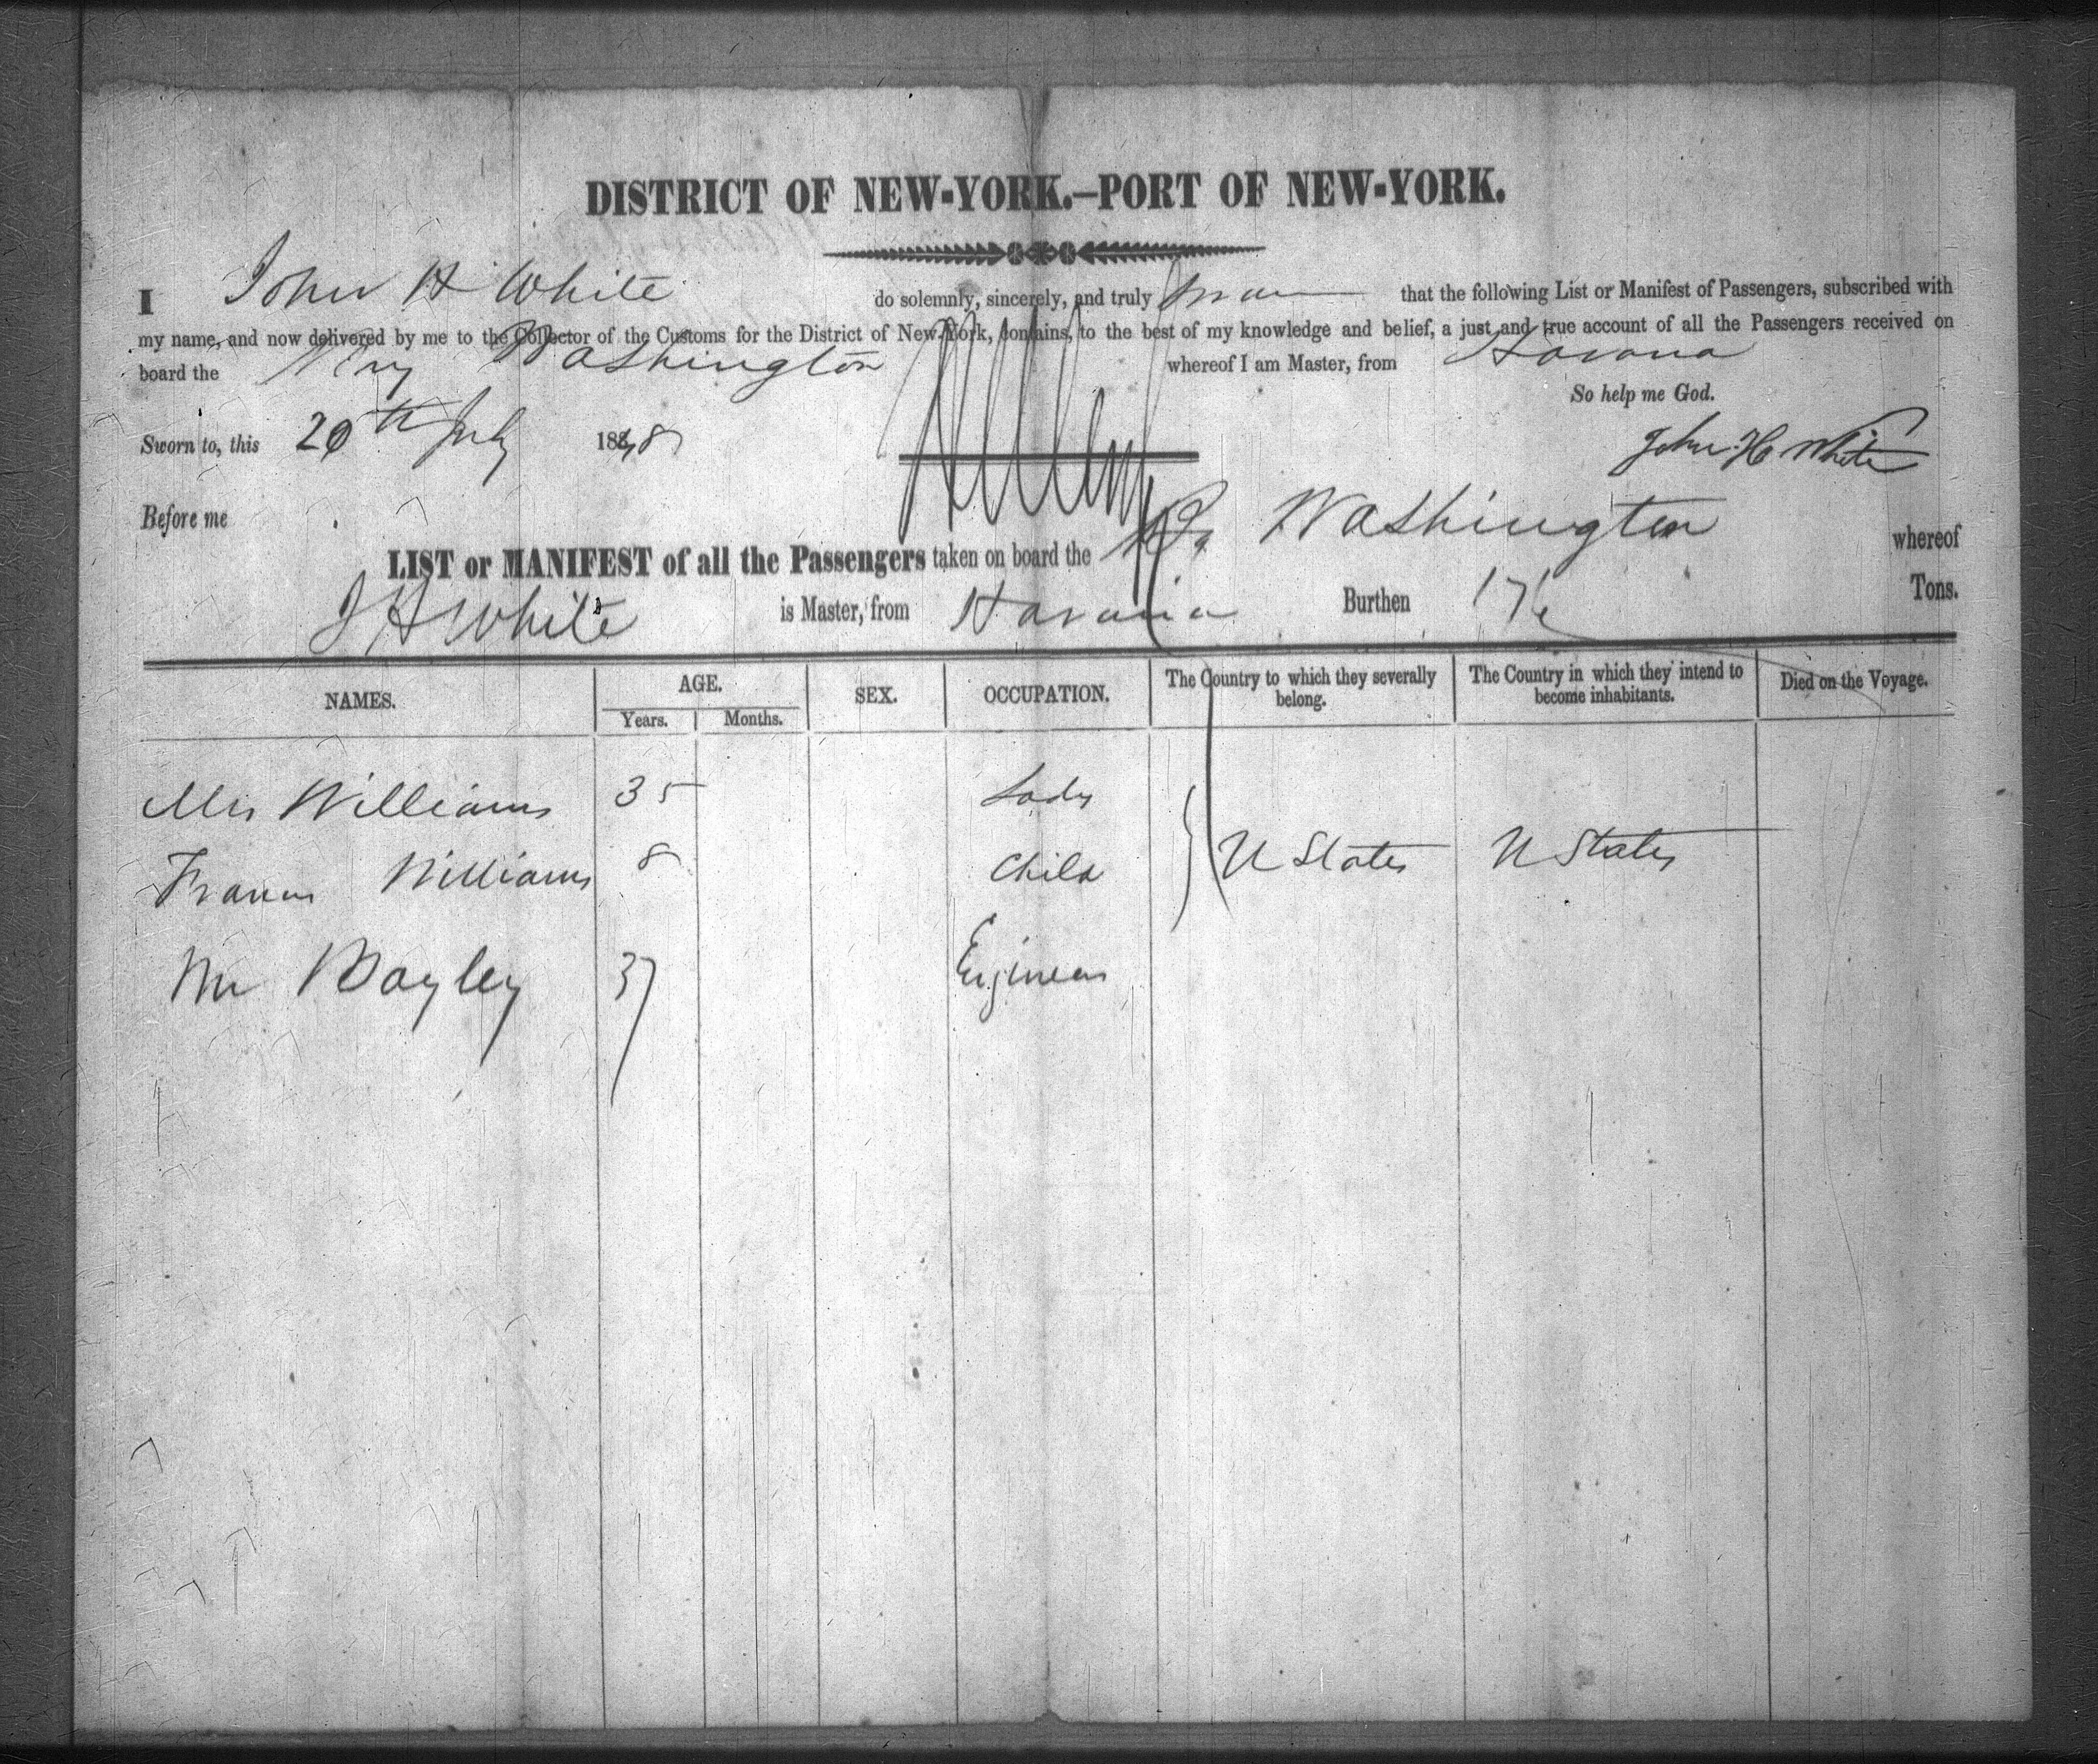 DISTRICT OF NEW-YORK.—PORT OF NEW-YORK.
I John H White do solemnly, sincerely, and truly swear that the following List or Manifest of Passengers, subscribed with
my name, and now delivered by me to the Collector of the Customs for the District of New-York, contains, to the best of my knowledge and belief, a just and true account of all the Passengers received on
board the Washington whereof I am Master, from Havana
So help me God.
Sworn to, this 20th July 1848
John H White
Before me
LIST or MANIFEST of all the Passengers taken on board the Washington whereof
J H White is Master, from Havana Burthen 176 Tons.
NAMES. AGE. SEX. OCCUPATION. The Country to which they severally belong. The Country in which they intend to become inhabitants. Died on the Voyage.
Years. Months.
Mrs Williams 35 Lady
Francis Williams 8 Child U States U States
Mr Bayley 37 Engineer